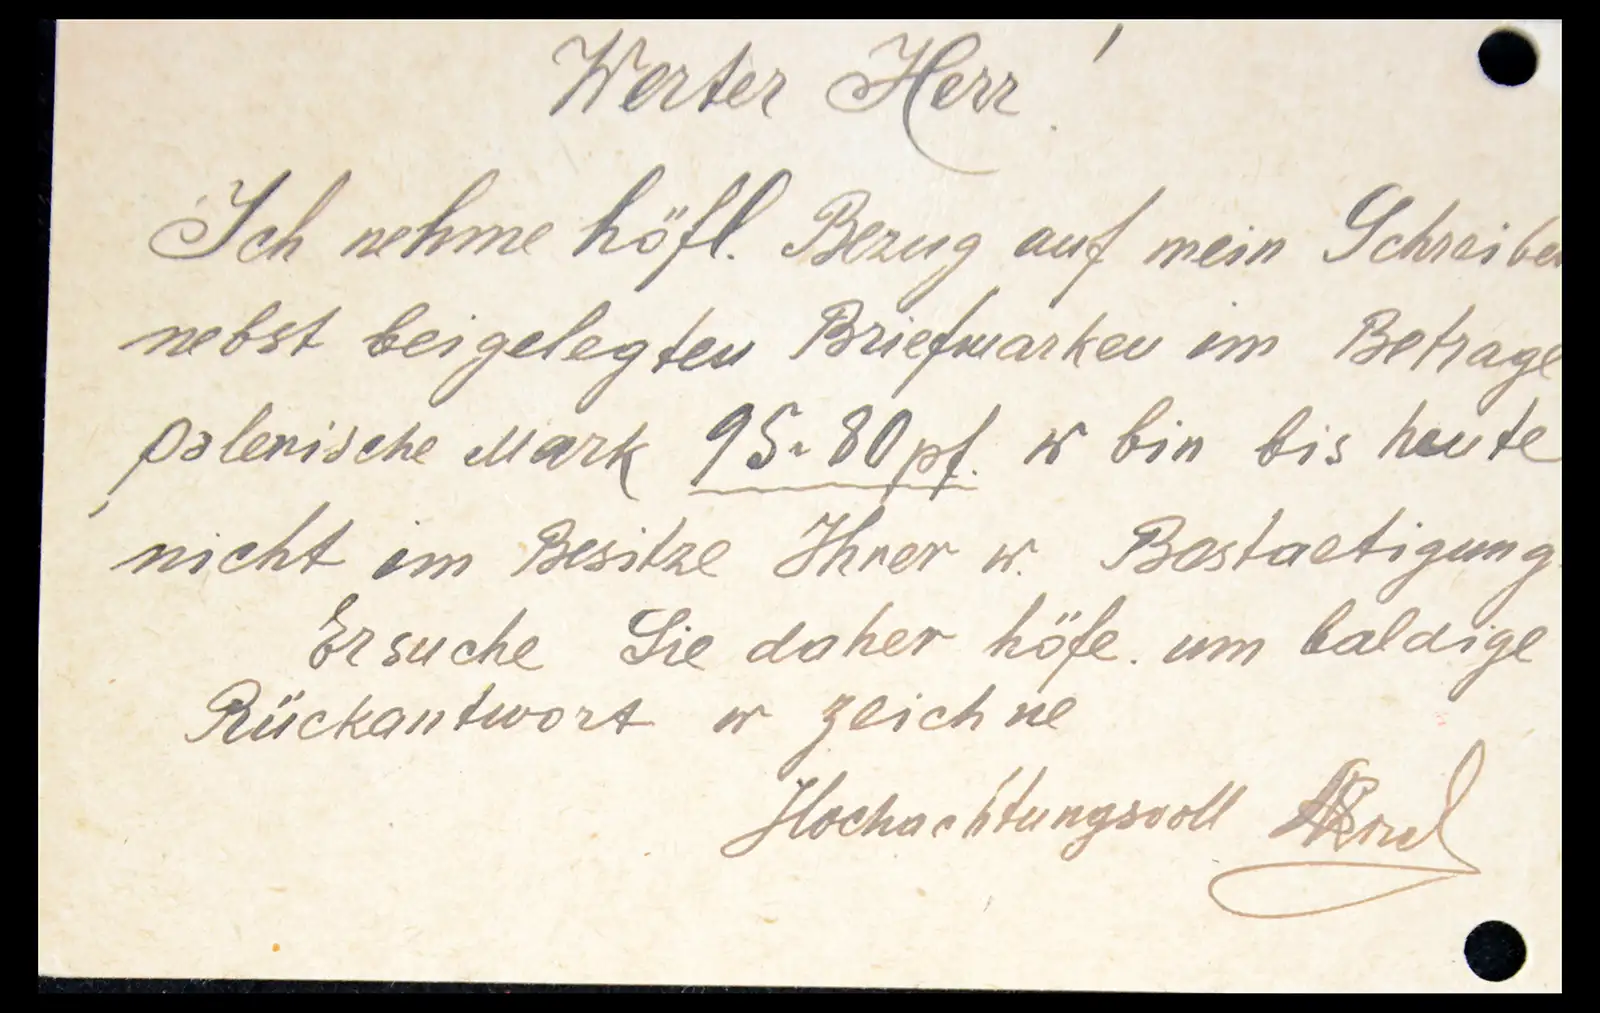 Werter Herr!
Ich nehme höfl. Bezug auf mein Schreiben
nebst beigelegten Briefmarken im Betrage
polenische Mark 95.80 pf. u bin bis heute
nicht im Besitze Ihrer w. Bestaetigung.
Ersuche Sie daher höfl. um baldige
Rückantwort u zeichne
Hochachtungsvoll